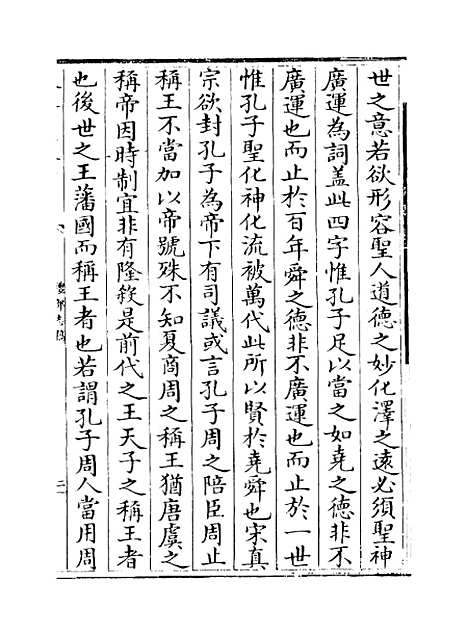 世之意若欲形容聖人道德之妙化澤之遠必須聖神
廣運為詞蓋此四字惟孔子足以當之如堯之德非不
廣運也而止於百年舜之德非不廣運也而止於一世
惟孔子聖化神化流被萬代此所以賢於堯舜也宋真
宗欲封孔子為帝下有司議或言孔子周之陪臣周止
稱王不當加以帝號殊不知夏商周之稱王猶唐虞之
稱帝因時制宜非有隆殺是前代之王天子之稱王者
也後世之王藩國而稱王者也若謂孔子周人當用周